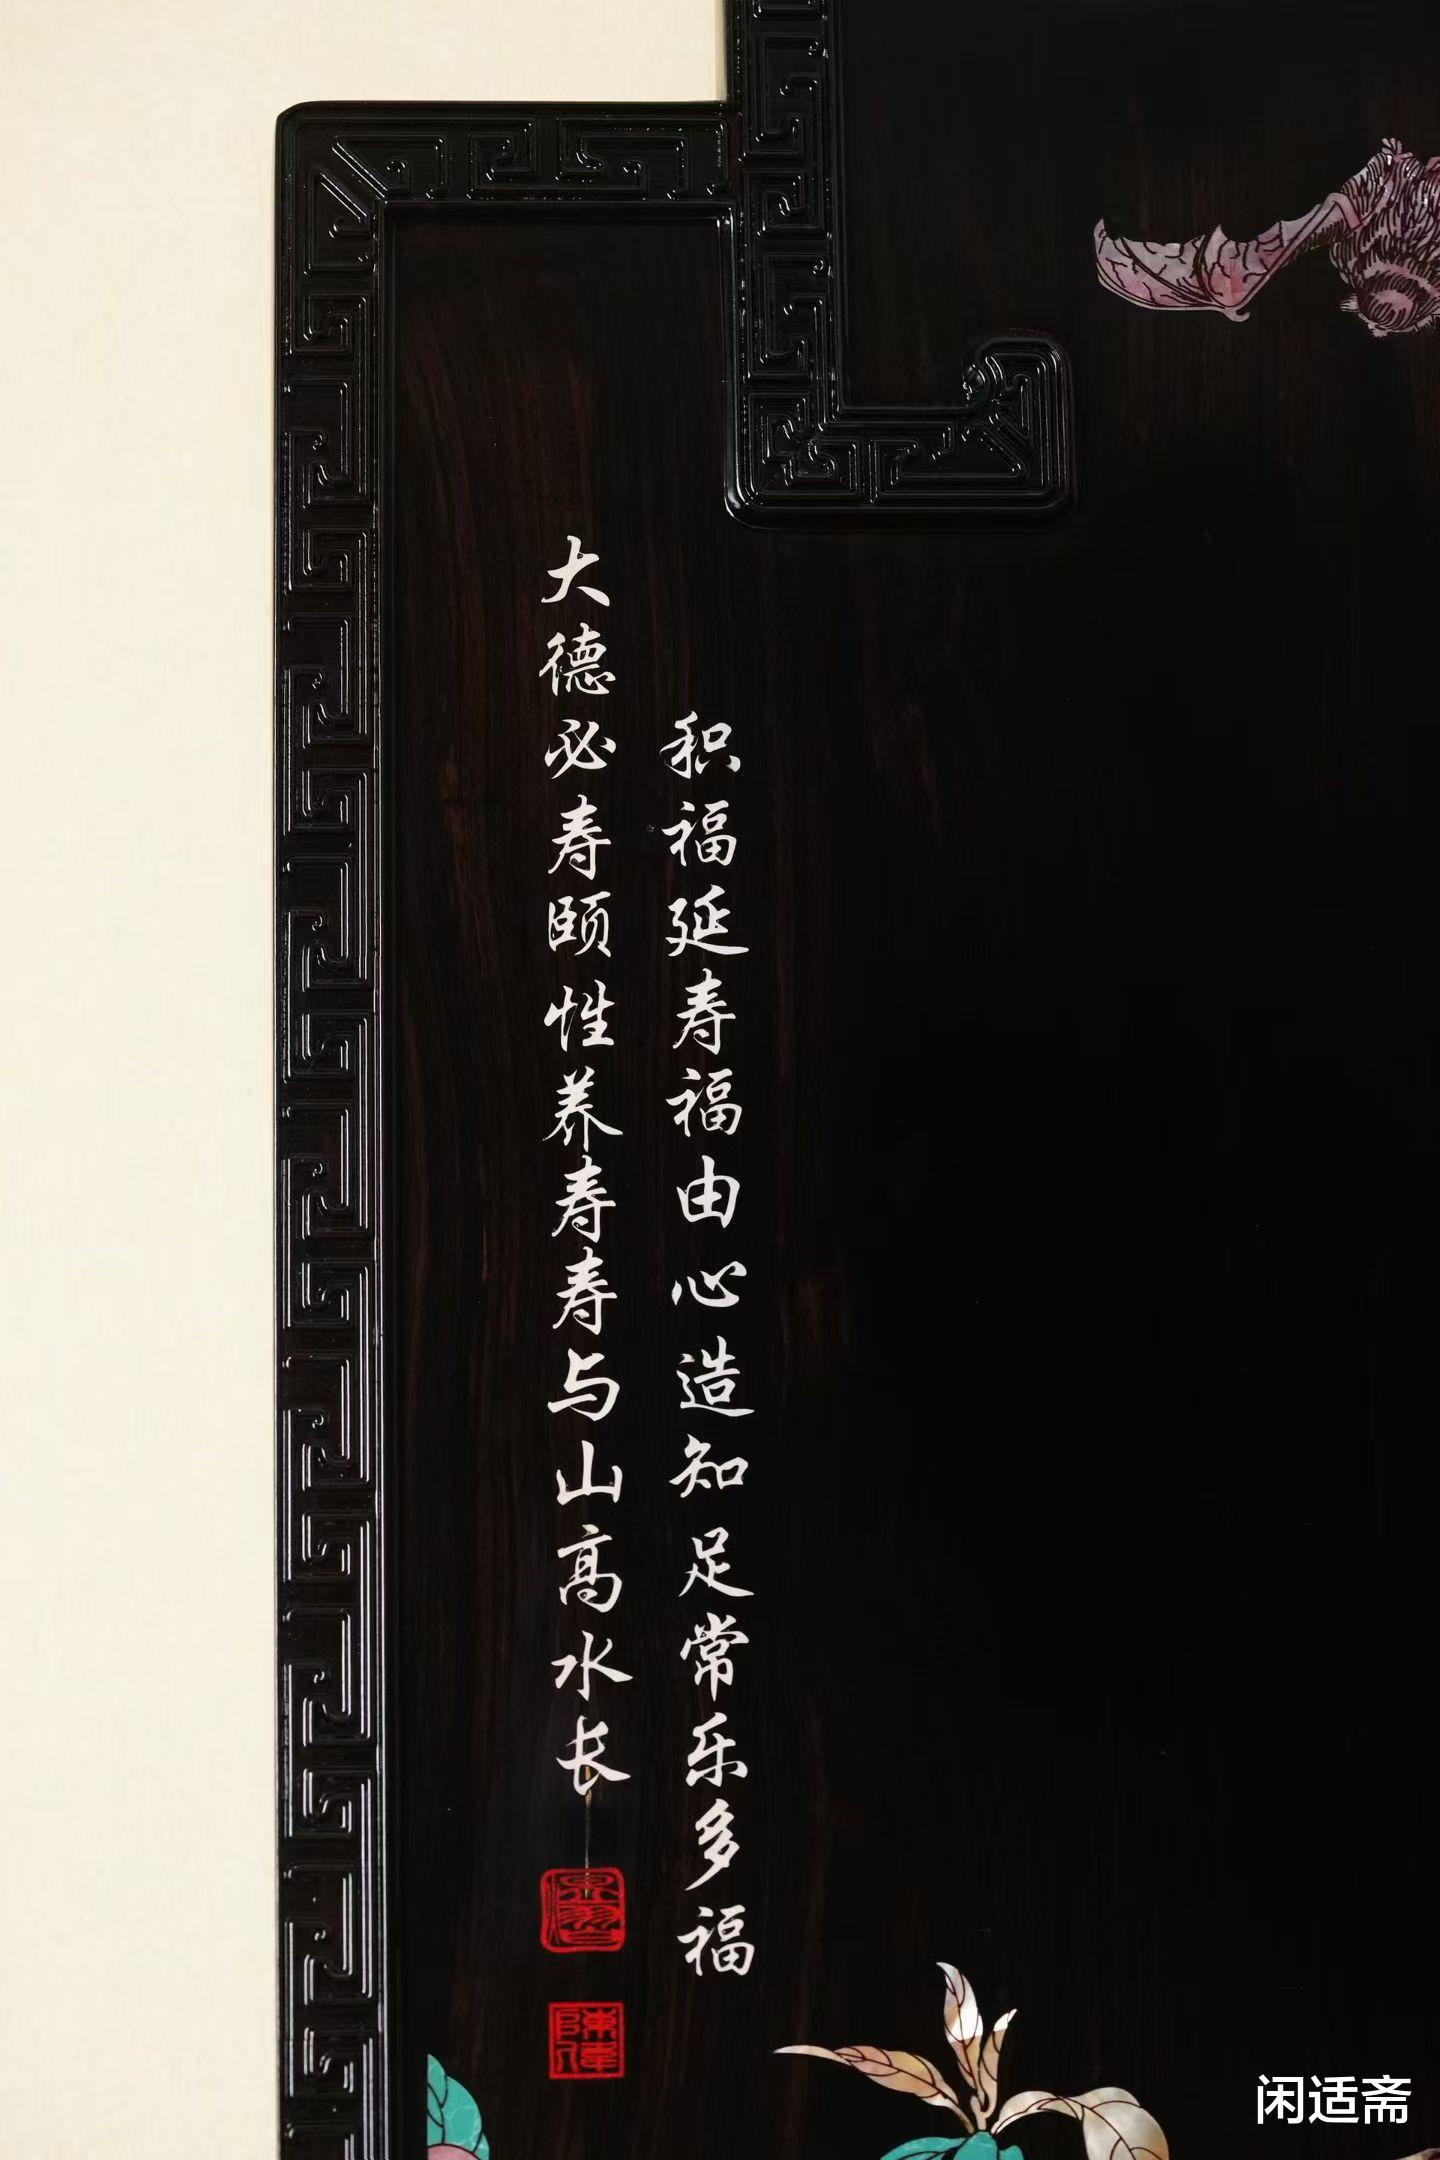 积福延寿福由心造知足常乐多福
大德必寿颐性养寿寿与山高水长
闲适斋